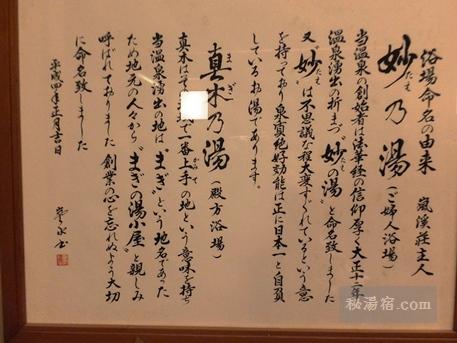 浴場命名の由来
嵐渓荘主人
妙乃湯（ご婦人浴場）
たえ
当温泉の創始者は法華経の信仰厚く大正十二年
温泉湧出の折まづ〝妙の湯〟と命名致しました
たえ
又妙は不思議な程大変すぐれているという意
たえ
を持っており泉質絶好効能は正に日本一と自負
しているお湯であります。
真木乃湯（殿方浴場）
まぎ
真木は
一番上手の地という意味を持ち
当温泉湧出の地は〝まぎ〟という地名であった
ため地元の人々から〝まぎの湯小屋〟と親しみ
呼ばれておりました 創業の心を忘れぬよう大切
に命名致しました
平成四年正月吉日
秘湯宿.com